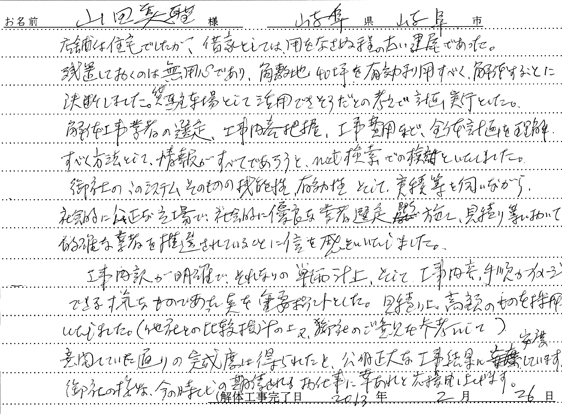 お名前 山田 様 県 市
店舗は住宅でしたが、借家としては、用をなさぬ程の古い家屋であった。
残置しておくのは無用心であり、角敷地40坪を有効利用すべく、解体することに
決断しました。駐車場として活用できそうだとの考えで計画実行とした。
解体工事業者の選定、工事内容把握、工事費用など、全体計画を理解
すべく方法として、情報がすべてであろうと、net検索での検討といたしました。
御社のシステムそのものの機能性、有効性として、実績等を伺いながら、
社会的に公正な立場で、社会的に優良な業者選定 施し、見積り等において
的確な業者を推選されていることに信を といたしました。
工事内訳が明確で、それなりの単価計上、そして工事内容、手順がイメージ
できる ものであった点を重要ポイントとした。見積り上、高額のものを採用
いたしました。(他社との比較検討の上、又、御社のご意見を参考にして)
意図していた通りの完成度は得られたと、公明正大な工事結果に 安堵しています。
御社の様な、今の時世 期待されるお仕事に 応援申し上げます。
(解体工事完了日 2013年 2月 26日